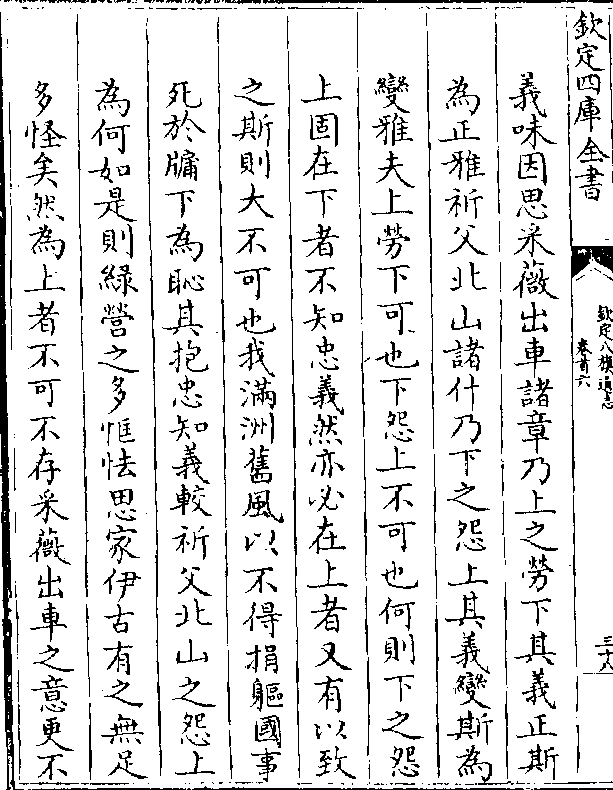 欽定四庫全書
欽定八旗通志
卷首六
三十八
義味因思采薇出車諸章乃上之勞下其義正斯
為正雅祈父北山諸什乃下之怨上其義變斯為
變雅夫上勞下可也下怨上不可也何則下之怨
上固在下者不知忠義然亦必在上者又有以致
之斯則大不可也我滿洲舊風以不得捐軀國事
死於牖下為恥其抱忠知義較祈父北山之怨上
為何如是則綠營之多恇怯思家伊古有之無足
多怪矣然為上者不可不存采薇出車之意更不